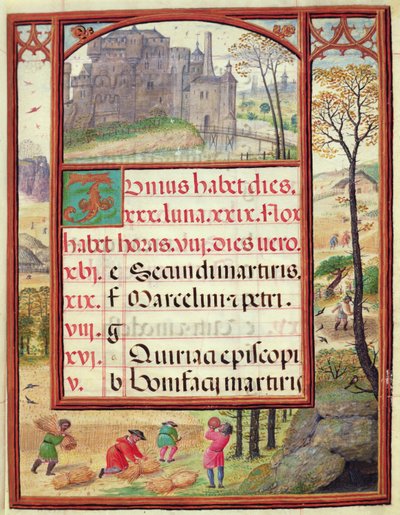 IVnius habet dies.
xxx. luna. xxix. Nox
habet horas. viij. dies uero.
xvj. e Secundi martiris.
xix. f Marcelini ⁊ petri.
viij. g
xvj. Quiriaci episcopi
v. b Bonifacij martiris